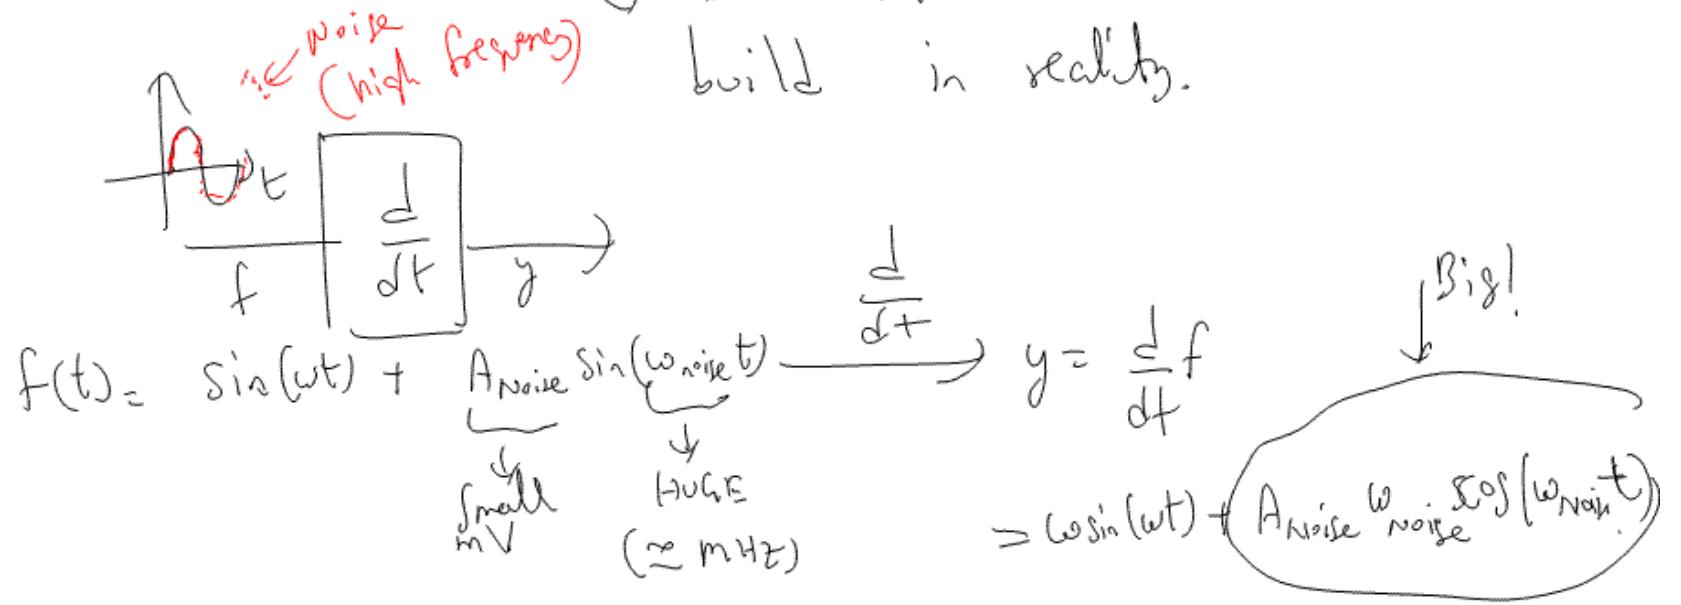 Noise
(high frequency)
build in reality.
t
f
d/dt
y
d/dt
Big!
f(t) = sin(ωt) + A_Noise sin(ω_noise t)
y = d/dt f
small
mV
HUGE
(≈ MHz)
= ω sin(ωt) + A_Noise ω_Noise cos(ω_Noise t)